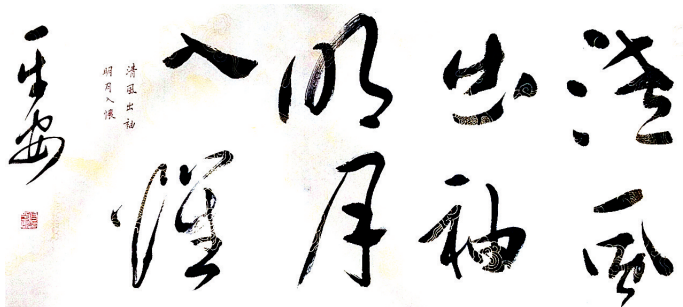 清風
出袖
明月
入懷
清風出袖
明月入懷